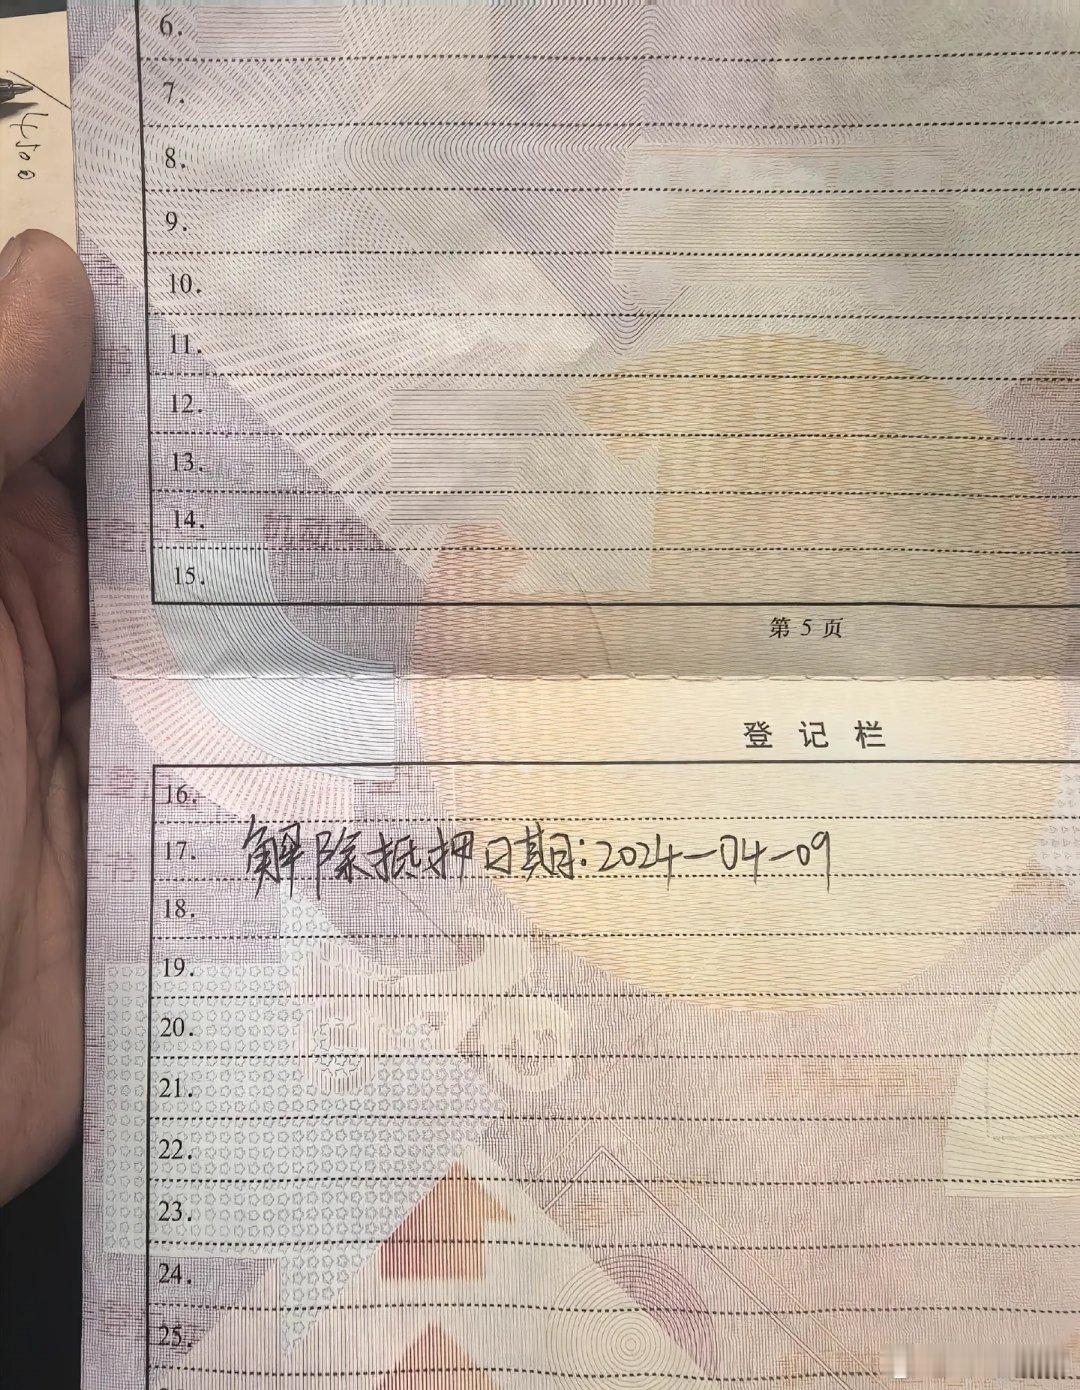 6.
7.
4500
8.
9.
10.
11.
12.
13.
14.
机动车
15.
第 5 页
登记栏
16.
17. 解除抵押日期:2024-04-09
18.
19.
20.
21.
22.
23.
24.
25.